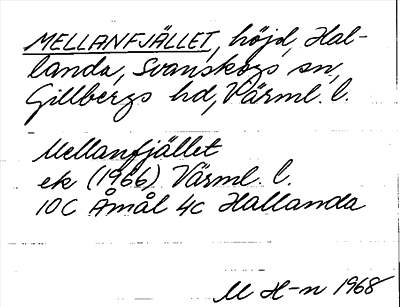 MELLANFJÄLLET, höjd, Hal-
landa, Svanskogs sn,
Gillbergs hd, Värml. l.
Mellanfjället
ek (1966) Värml. l.
10C Åmål 4c Hallanda
M H-n 1968